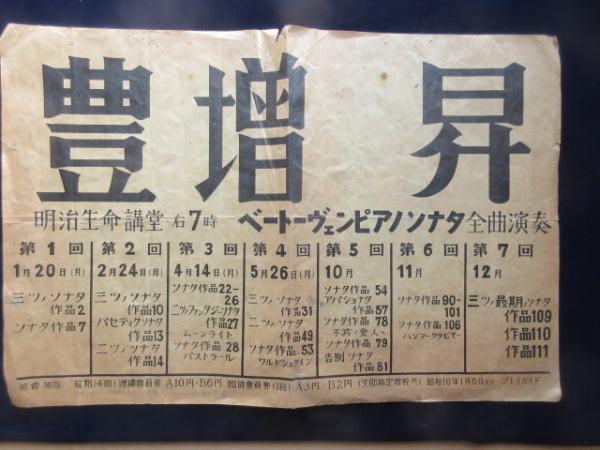 豊増昇
明治生命講堂 右7時 ベートーヴェンピアノソナタ 全曲演奏
第1回
1月20日(月)
三ツノソナタ
作品2
ソナタ作品7
第2回
2月24日(月)
三ツノソナタ
作品10
パセティクソナタ
作品13
二ツノソナタ
作品14
第3回
4月14日(月)
ソナタ作品22-
26
二ツノファンタジーソナタ
作品27
ムーンライト
ソナタ作品 28
パストラール
第4回
5月26日(月)
三ツノソナタ
作品31
二ツノソナタ
作品49
ソナタ作品 53
ワルドシュタイン
第5回
10月
ソナタ作品 54
アパショナタ
作品57
ソナタ作品 78
ソナタ作品 79
告別ソナタ
作品81
第6回
11月
ソナタ作品90-
101
ソナタ作品106
ハンマークラビヤー
第7回
12月
三ツノ最期ノソナタ
作品109
作品110
作品111
前期(4回)連續會員券 A10円・B6円 臨時會員券(1回)A3円 B2円 (全部指定席税共) 昭和16年1月6日ヨリ プレイガイド